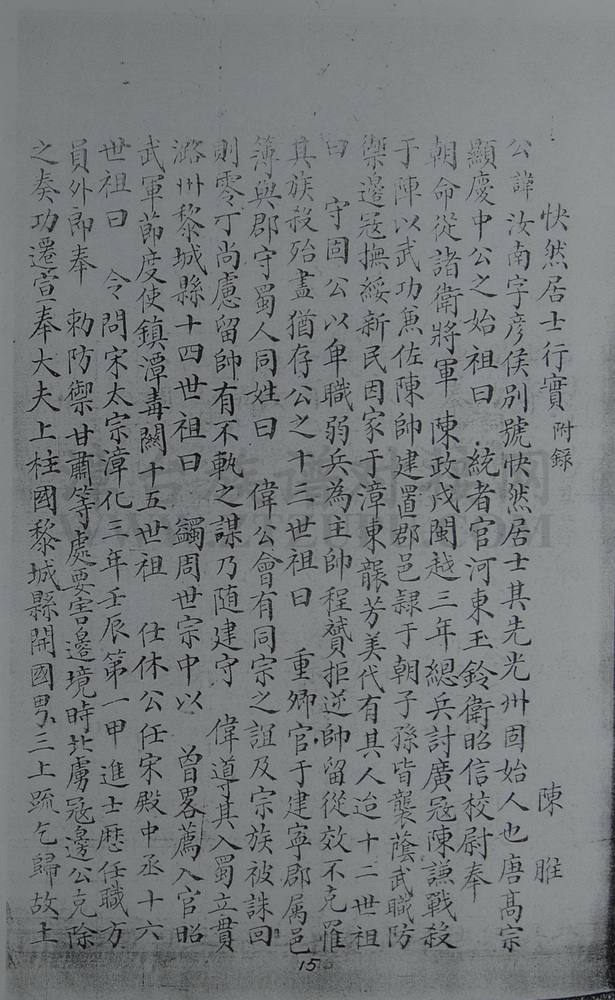 快然居士行實 附錄
陳 睢
公諱汝南字彥侯別號快然居士其先光州固始人也唐高宗
顯慶中公之始祖曰 統者官河東玉鈐衛昭信校尉奉
朝命從諸衛將軍 陳政戍閩越三年總兵討廣寇陳謙戰殺
于陳以武功兼佐陳帥建置郡邑隸于朝子孫皆襲蔭武職防
禦邊寇撫綏新民因家于漳東襲芳美代有其人迨十二世祖
曰 守固公以卑職弱兵為主帥程贇拒逆帥留從效不克罹
其族殺殆盡猶存公之十三世祖曰 重卿官于建寧郡属邑
簿與郡守蜀人同姓曰 偉公會有同宗之誼及宗族被誅回
則零丁尚慮留帥有不軌之謀乃随建守 偉導其入蜀立貫
潞州黎城縣十四世祖曰 蠲周世宗中以 曾畧薦入官昭
武軍節度使鎮潭毒關十五世祖 仕休公任宋殿中丞十六
世祖曰 令問宋太宗淳化三年壬辰第一甲 進士歷任職方
員外郎奉 勅防禦甘肅等處要害邊境時北虜寇邊公克除
之奏功遷宣奉大夫上柱國黎城縣開國男三上疏乞歸故土
15